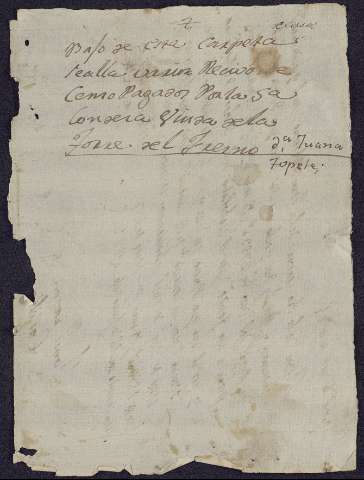 Bajo de esta Carpeta
se alla Recivos de
Censo Pagados Por la Sa
Condesa Viuda de la
Torre del Fresno da Juana
Topete